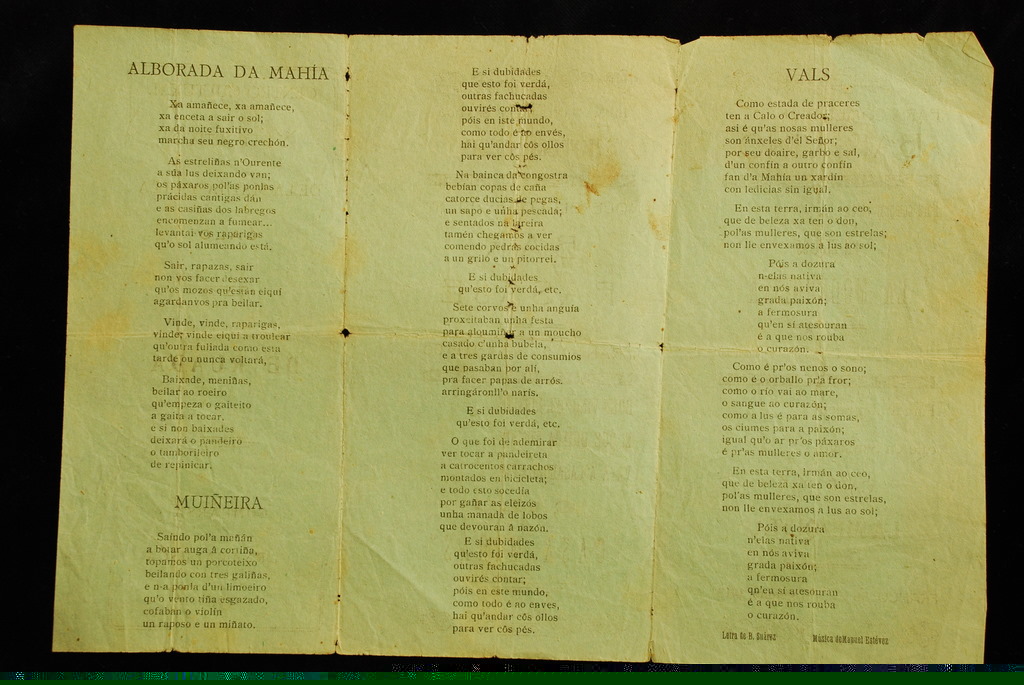 ALBORADA DA MAHÍA
Xa amañece, xa amañece,
xa enceta a sair o sol;
xa da noite fuxitivo
marcha seu negro crechón.
As estreliñas n'Ourente
a súa lus deixando van;
os páxaros pol'as ponlas
prácidas cantigas dán
e as casiñas dos labregos
encomenzan a fumear...
levantai vos raparigas
qu'o sol alumeando está.
Sair, rapazas, sair
non vos facer desexar
qu'os mozos qu'están eiquí
agardanvos pra beilar.
Vinde, vinde, raparigas,
vinde, vinde eiquí a troulear
qu'outra fuliada como esta
tarde ou nunca voltará,
Baixade, meniñas,
beilar ao roeiro
qu'empeza o gaiteito
a gaita a tocar.
e si non baixades
deixará o pandeiro
o tamborileiro
de repinicar.
MUIÑEIRA
Saindo pol'a mañán
a botar auga â cortiña,
topamos un porcoteixo
beilando con tres galiñas,
e n-a ponla d'un limoeiro
qu'o vento tiña esgazado,
cofaban o violín
un raposo e un miñato.
E si dubidades
que esto foi verdá,
outras fachucadas
ouvirés contar,
póis en iste mundo,
como todo é ao envés,
hai qu'andar côs ollos
para ver côs pés.
Na bainca da congostra
bebían copas de caña
catorce ducias de pegas,
un sapo e unha pescada;
e sentados na lareira
tamén chegamos a ver
comendo pedras cocidas
a un grilo e un pitorrei.
E si dubidades
qu'esto foi verdá, etc.
Sete corvos e unha anguía
proxeitaban unha festa
para aloumiñar a un moucho
casado c'unha bubela,
e a tres gardas de consumios
que pasaban por alí,
pra facer papas de arrós.
arringáronll'o narís.
E si dubidades
qu'esto foi verdá, etc.
O que foi de ademirar
ver tocar a pandeireta
a catrocentos carrachos
montados en bicicleta;
e todo esto socedía
por gañar as eleizós
unha manada de lobos
que devouran â nazón.
E si dubidades
qu'esto foi verdá,
outras fachucadas
ouvirés contar;
póis en este mundo,
como todo é ao enves,
hai qu'andar côs ollos
para ver côs pés.
VALS
Como estada de praceres
ten a Calo o Creador;
asi é qu'as nosas mulleres
son ánxeles d'él Señor;
por seu doaire, garbo e sal,
d'un confín a outro confín
fan d'a Mahía un xardín
con ledicias sin igual.
En esta terra, irmán ao ceo,
que de beleza xa ten o don,
pol'as mulleres, que son estrelas;
non lle envexamos a lus ao sol;
Póis a dozura
n-elas nativa
en nós aviva
grada paixón;
a fermosura
qu'en sí atesouran
é a que nos rouba
o curazón.
Como é pr'os nenos o sono;
como é o orballo pr'a fror;
como o río vai ao mare,
o sangue ao curazón;
como a lus é para as somas,
os ciumes para a paixón;
igual qu'o ar pr'os páxaros
é pr'as mulleres o amor.
En esta terra, irmán ao ceo,
que de beleza xa ten o don,
pol'as mulleres, que son estrelas,
non lle envexamos a lus ao sol;
Póis a dozura
n'elas nativa
en nós aviva
grada paixón;
a fermosura
qn'en sí atesouran
é a que nos rouba
o curazón.
Letra de B. Suárez Música de Manuel Estévez